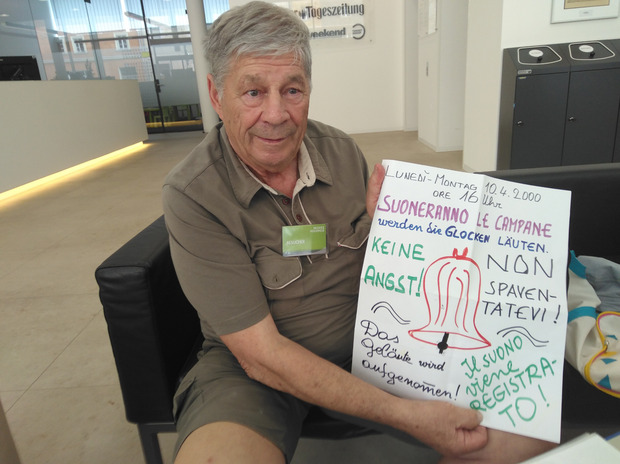 Tageszeitung
weekend
LUNEDÌ-MONTAG 10.4.2000
ORE 16 Uhr
SUONERANNO LE CAMPANE
werden die GLOCKEN LÄUTEN.
KEINE
ANGST!
NON
SPAVEN-
TATEVI!
Das
geläute wird
aufgenommen!
Il SUONO
viene
REGISTRA-
TO!